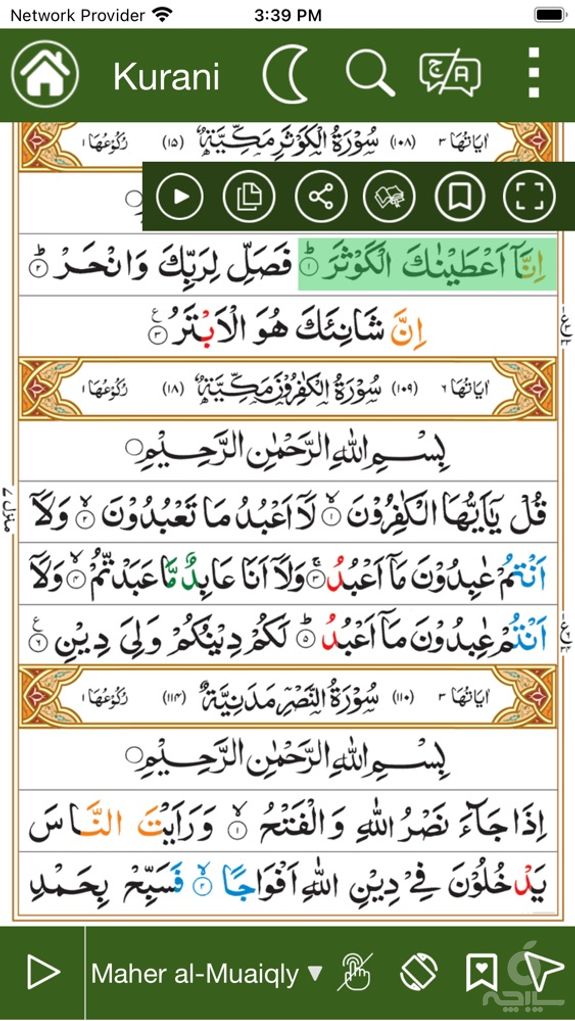 Network Provider 3:39 PM
Kurani
اٰیَاتُهَا ۳ (۱۰۸) سُوْرَةُ الْكَوْثَرِ مَكِّیَّةٌ (۱۵) رُكُوْعُهَا ۱
اِنَّاۤ اَعْطَیْنٰكَ الْكَوْثَرَ ؕ۱ فَصَلِّ لِرَبِّكَ وَ انْحَرْ ؕ۲
اِنَّ شَانِئَكَ هُوَ الْاَبْتَرُ ۳ ع
اٰیَاتُهَا ۶ (۱۰۹) سُوْرَةُ الْكٰفِرُوْنَ مَكِّیَّةٌ (۱۸) رُكُوْعُهَا ۱
بِسْمِ اللّٰهِ الرَّحْمٰنِ الرَّحِیْمِ
قُلْ یٰۤاَیُّهَا الْكٰفِرُوْنَ ۙ۱ لَاۤ اَعْبُدُ مَا تَعْبُدُوْنَ ۙ۲ وَ لَاۤ
اَنْتُمْ عٰبِدُوْنَ مَاۤ اَعْبُدُ ۚ۳ وَ لَاۤ اَنَا عَابِدٌ مَّا عَبَدْتُّمْ ۙ۴ وَ لَاۤ
اَنْتُمْ عٰبِدُوْنَ مَاۤ اَعْبُدُ ؕ۵ لَكُمْ دِیْنُكُمْ وَلِیَ دِیْنِ ۶ ع
منزل ۷
اٰیَاتُهَا ۳ (۱۱۰) سُوْرَةُ النَّصْرِ مَدَنِیَّةٌ (۱۱۴) رُكُوْعُهَا ۱
بِسْمِ اللّٰهِ الرَّحْمٰنِ الرَّحِیْمِ
اِذَا جَآءَ نَصْرُ اللّٰهِ وَ الْفَتْحُ ۙ۱ وَ رَاَیْتَ النَّاسَ
یَدْخُلُوْنَ فِیْ دِیْنِ اللّٰهِ اَفْوَاجًا ۙ۲ فَسَبِّحْ بِحَمْدِ
Maher al-Muaiqly ▼